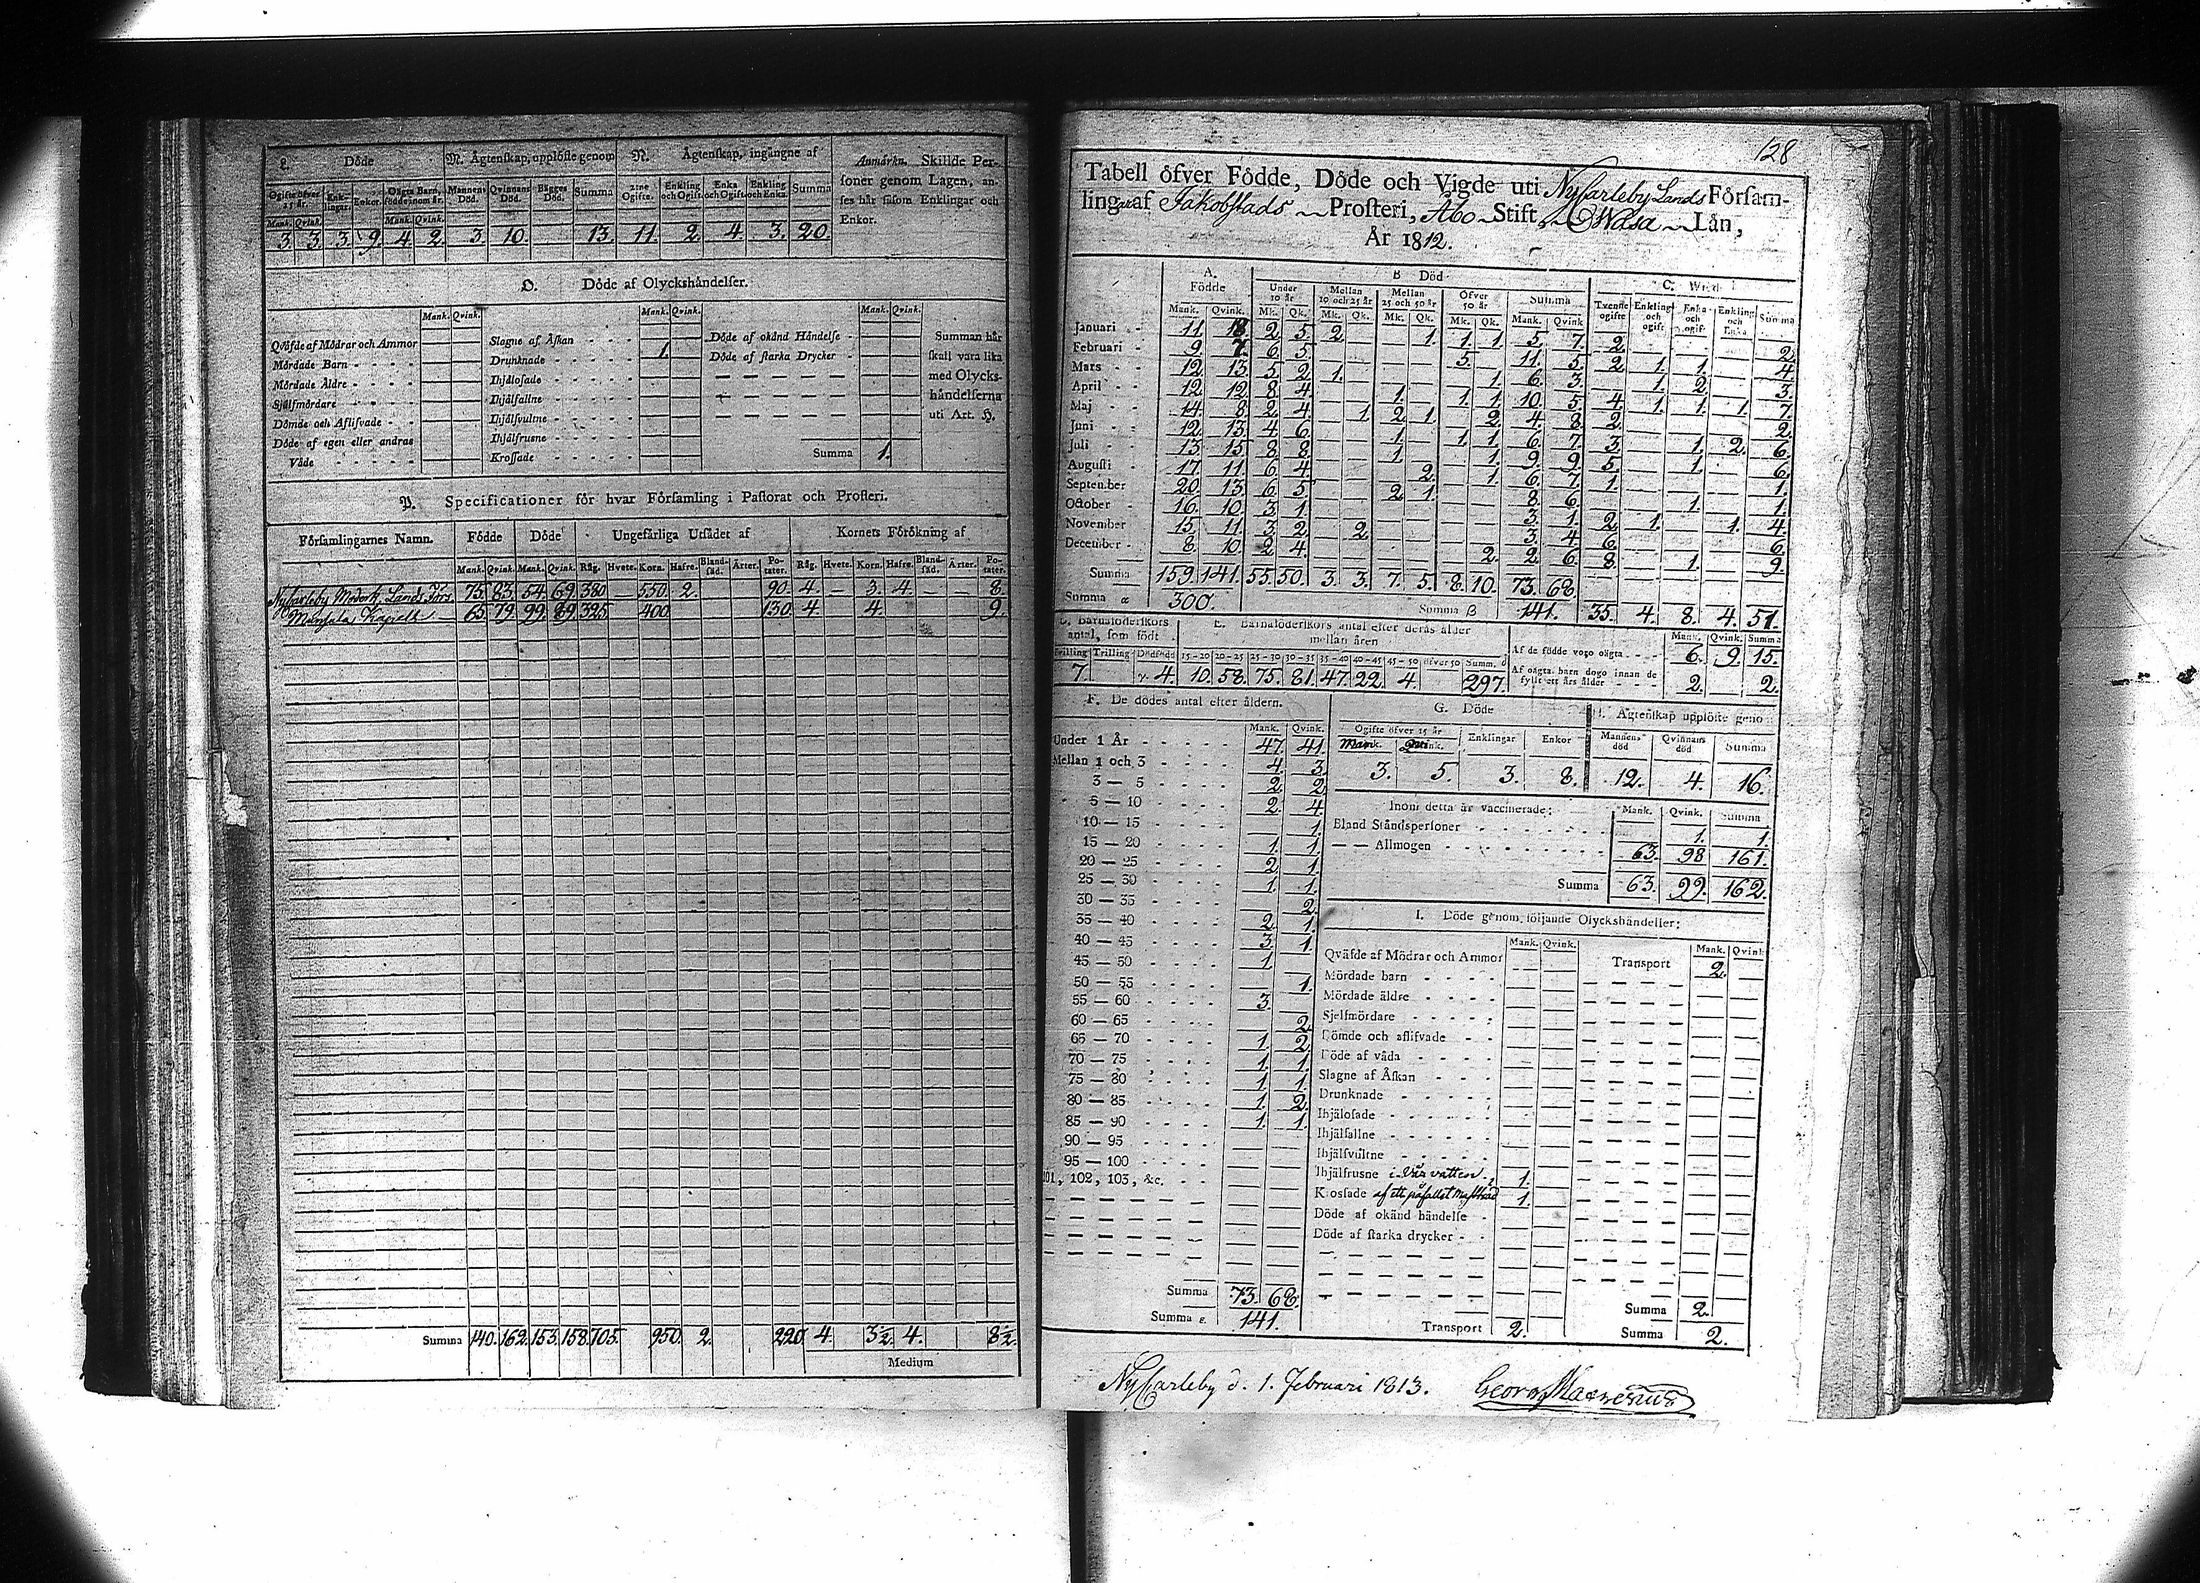 L. Döde
M. Ägtenskap, upplöste genom
N. Ägtenskap, ingångne af
Anmärkn. Skillde Per-
soner genom Lagen, an-
ses här såsom Enklingar och
Enkor.
Ogifte öfver 15 år. Enk-lingar. Enkor. Oägta Barn, födde inom år. Mannens Död. Qvinnans Död. Bägges Död. Summa 2:ne Ogifte. Enkling och Ogift. Enka och Ogift. Enkling och Enka. Summa
Mank. Qvink. Mank. Qvink.
3. 3. 3. 9. 4. 2. 3. 10. 13. 11. 2. 4. 3. 20.
O. Döde af Olyckshändelser.
Mank. Qvink. Mank. Qvink. Mank. Qvink.
Qväfde af Mödrar och Ammor
Mördade Barn
Mördade Äldre
Sjelfmördare
Dömde och Aflifvade
Döde af egen eller andras
Våde
Slagne af Åskan
Drunknade 1.
Ihjälosade
Ihjälfallne
Ihjälfvultne
Ihjälfrusne
Krossade
Döde af okänd Händelse
Döde af starka Drycker
Summa 1.
Summan här
skall vara lika
med Olycks-
händelserna
uti Art. H.
P. Specificationer för hvar Församling i Pastorat och Prosteri.
Församlingarnes Namn. Födde Döde Ungefärliga Utsädet af Kornets Förökning af
Mank. Qvink. Mank. Qvink. Råg. Hvete. Korn. Hafre. Bland-säd. Ärter. Po-tater. Råg. Hvete. Korn. Hafre. Bland-säd. Ärter. Po-tater.
NyCarleby Moderk. Lands Förs. 75. 83. 54. 69. 380 — 550. 2. 90. 4. — 3. 4. — — 8.
Munsala Kapell 65. 79. 99. 89. 325 400 130 4. 4. 9.
Summa 140. 162. 153. 158. 705. 950. 2. 220. 4. 3½ 4. 8½
Medium
128
Tabell öfver Födde, Döde och Vigde uti NyCarleby Lands Försam-
lingar af Jakobstads Prosteri, Åbo Stift, Wasa Län,
År 1812.
A. Födde B Död C. Wigd
Under 10 år Mellan 10 och 25 år Mellan 25 och 50 år Öfver 50 år Summa Tvenne ogifte Enkling och ogift Enka och ogift Enkling och Enka Summa
Mank. Qvink. Mk. Qk. Mk. Qk. Mk. Qk. Mk. Qk. Mank. Qvink
Januari 11. 18 2. 5. 2. 1. 1. 1. 5. 7. 2. 2.
Februari 9. 7. 6. 5. 5. 11. 5. 2. 1. 1. 4.
Mars 12. 13. 5. 2. 1. 1. 6. 3. 1. 2. 3.
April 12. 12. 8. 4. 1. 1. 1. 10. 5. 4. 1. 1. 1. 7.
Maj 14. 8. 2. 4. 1. 2. 1. 2. 4. 8. 2. 2.
Juni 12. 13. 4. 6. 1. 1. 1. 6. 7. 3. 1. 2. 6.
Juli 13. 15. 8. 8. 1. 1. 9. 9. 5. 1. 6.
Augusti 17. 11. 6. 4. 2. 1. 6. 7. 1. 1.
September 20. 13. 6. 5. 2. 1. 8. 6. 1. 1.
October 16. 10. 3. 1. 3. 1. 2. 1. 1. 4.
November 15. 11. 3. 2. 2. 3. 4. 6. 6.
December 8. 10. 2. 4. 2. 2. 6. 8. 1. 9.
Summa 159. 141. 55. 50. 3. 3. 7. 5. 8. 10. 73. 68.
Summa α 300. Summa β 141. 35. 4. 8. 4. 51.
D. Barnaföderskors antal, som födt
E. Barnaföderskors antal efter deras ålder mellan åren
Tvilling Trilling Dödfödd 15-20 20-25 25-30 30-35 35-40 40-45 45-50 öfver 50 Summ. δ
7. γ. 4. 10. 58. 75. 81. 47. 22. 4. 297.
Mank. Qvink. Summa
Af de födde voro oägta 6. 9. 15.
Af oägta barn dogo innan de
fyllt ett års ålder 2. 2.
F. De dödes antal efter åldern.
Mank. Qvink.
Under 1 År 47. 41.
Mellan 1 och 3 4. 3.
3 — 5 2. 2.
5 — 10 2. 4.
10 — 15 1.
15 — 20 1. 1.
20 — 25 2. 1.
25 — 30 1. 1.
30 — 35 2.
35 — 40 2. 1.
40 — 45 3. 1.
45 — 50 1.
50 — 55 1.
55 — 60 3.
60 — 65 2.
65 — 70 1. 2.
70 — 75 1. 1.
75 — 80 1. 1.
80 — 85 1. 2.
85 — 90 1. 1.
90 — 95
95 — 100
101, 102, 103, &c.
Summa 73. 68.
Summa ε. 141.
G. Döde
Ogifte öfver 15 år Enklingar Enkor
Mank. Qvink.
3. 5. 3. 8.
H. Ägtenskap upplöste genom
Mannens död Qvinnans död Summa
12. 4. 16.
Inom detta år vaccinerade: Mank. Qvink. Summa
Bland Ståndspersoner 1. 1.
— — Allmogen 63. 98 161.
Summa 63. 99. 162.
I. Döde genom följande Olyckshändelser:
Mank. Qvink. Mank. Qvink
Qväfde af Mödrar och Ammor
Mördade barn
Mördade äldre
Sjelfmördare
Dömde och aflifvade
Döde af våda
Slagne af Åskan
Drunknade
Ihjälosade
Ihjälfallne
Ihjälfvultne
Ihjälfrusne i Vårvatten 1.
Krossade af ett påfallet 1.
Döde af okänd händelse
Döde af starka drycker
Transport 2.
Transport 2.
Summa 2.
Summa 2.
NyCarleby d. 1. Februari 1813.